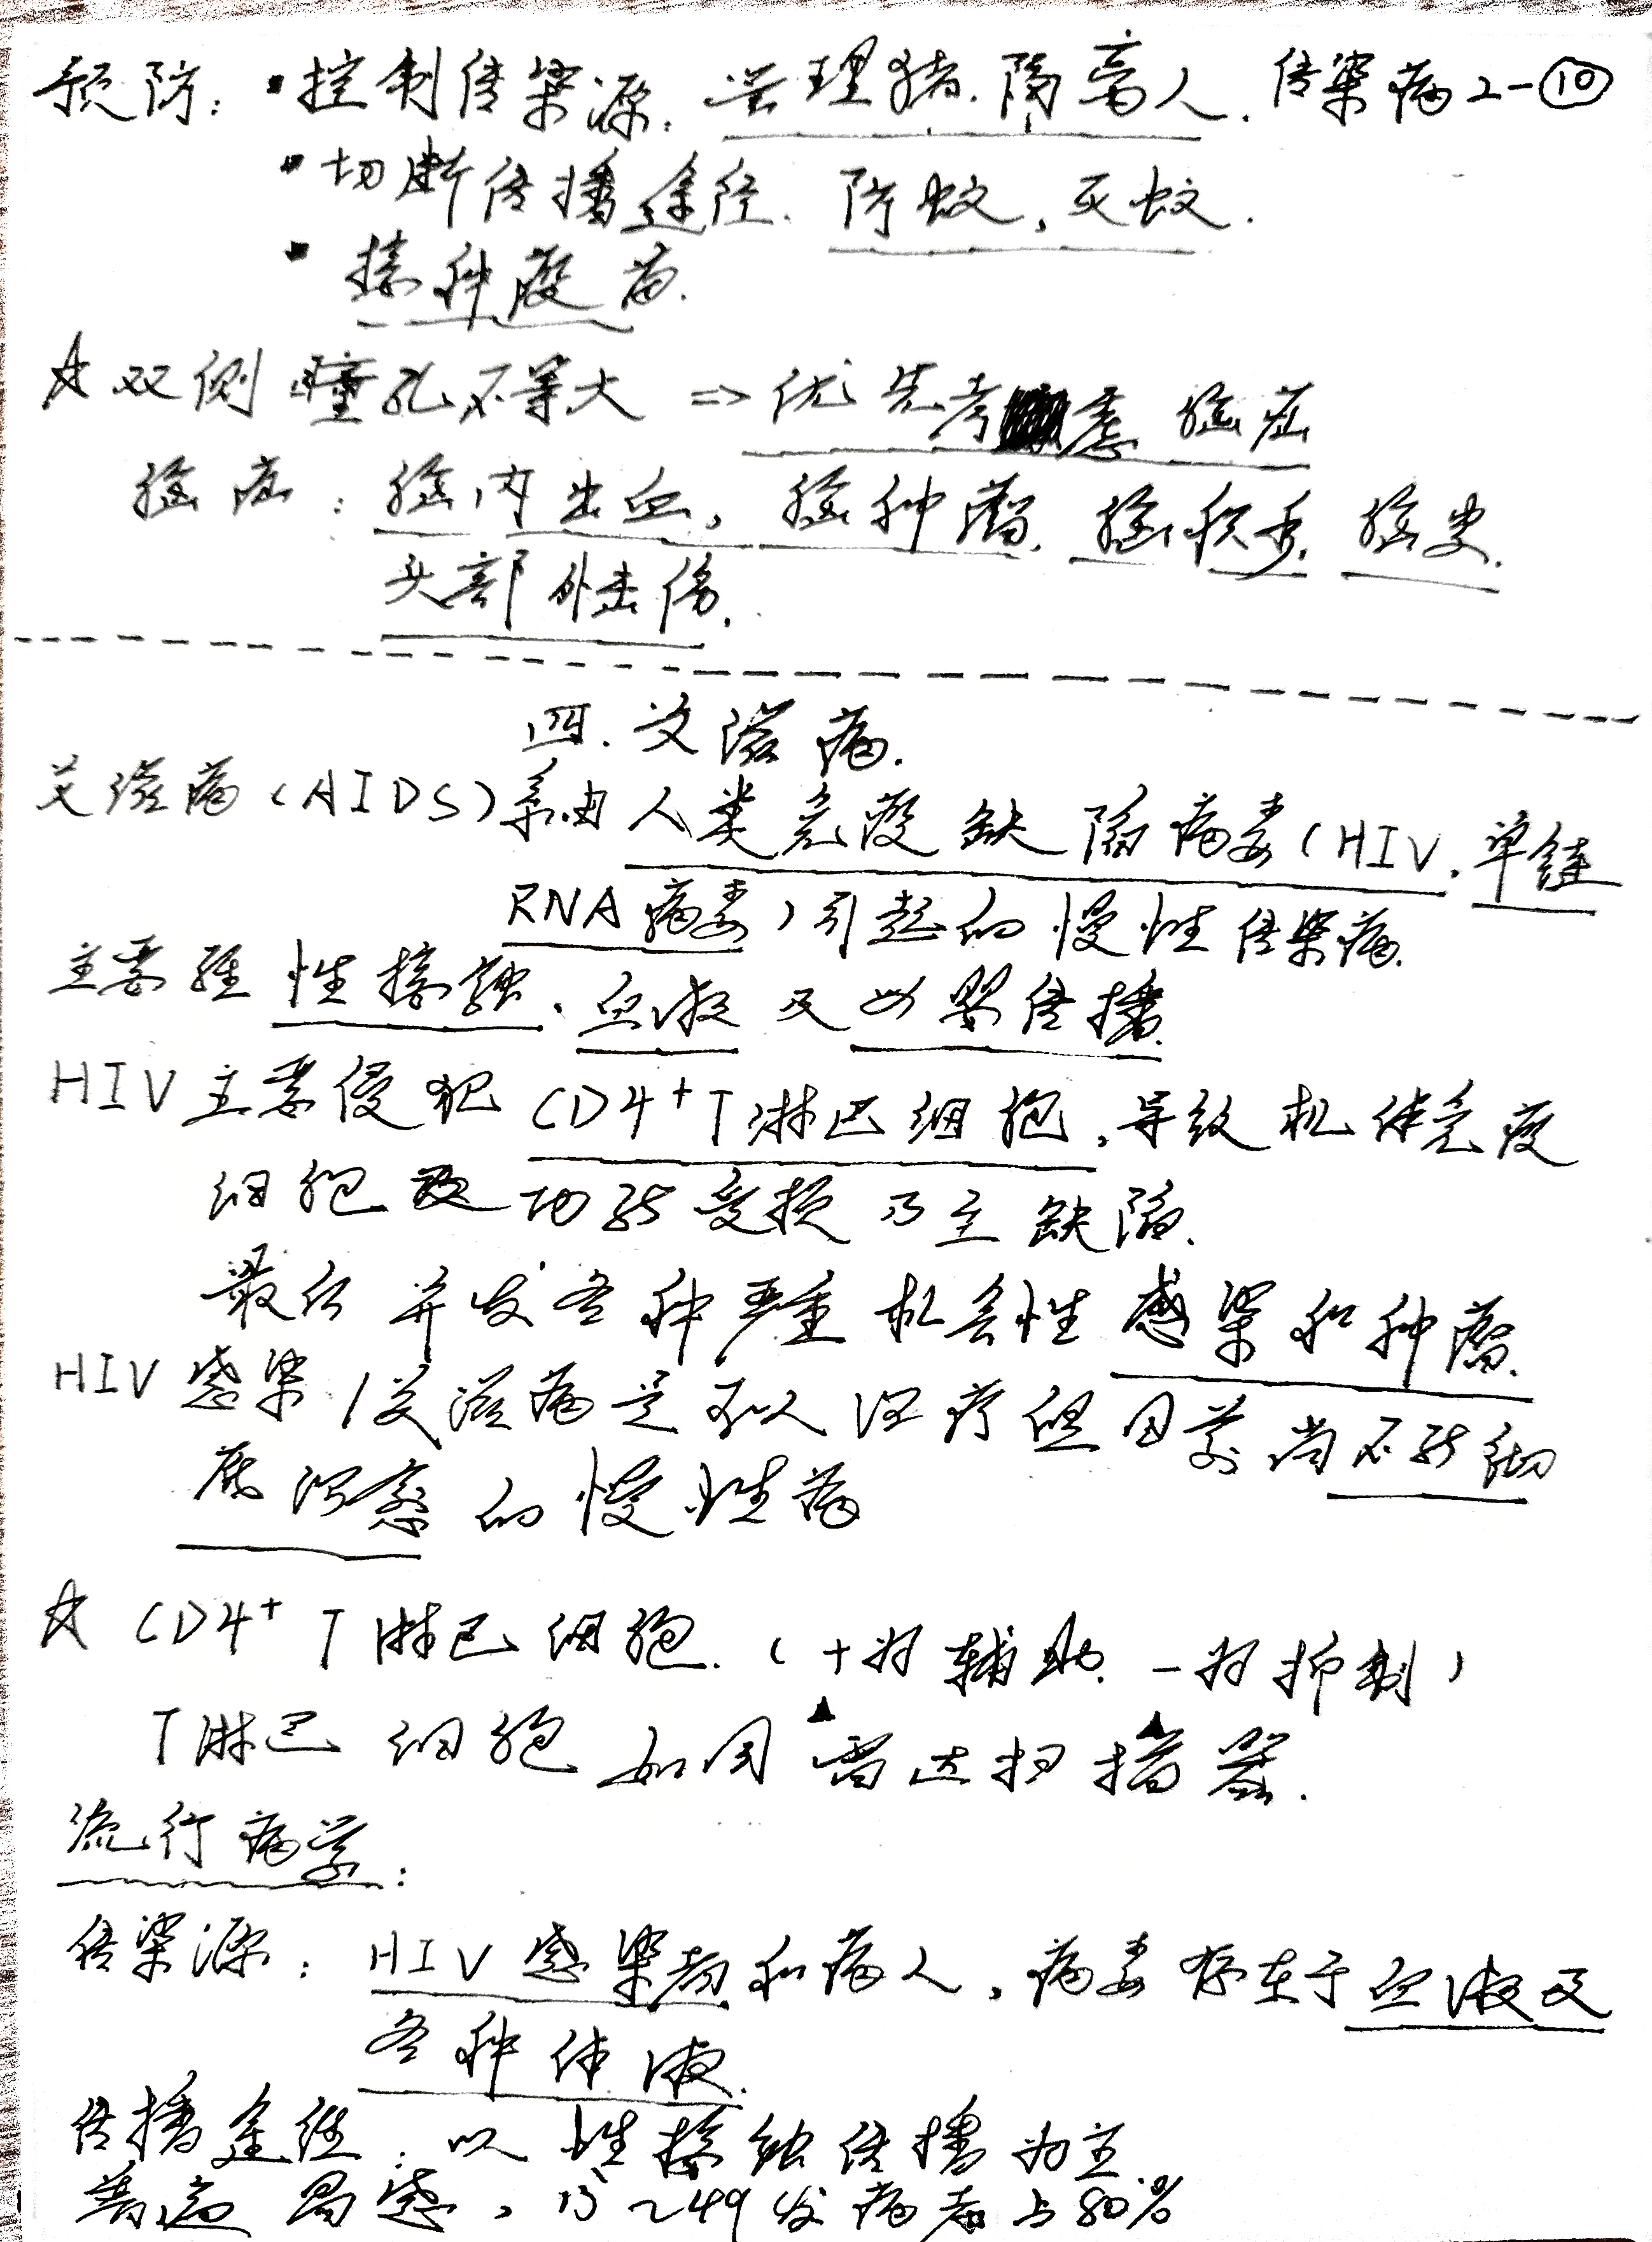 预防：·控制传染源：管理猪、隔离人．传染病2-⑩
·切断传播途径．防蚊，灭蚊．
·接种疫苗．
☆双侧瞳孔不等大 => 优先考虑脑疝
脑疝：脑内出血，脑肿瘤、脑积水、脑炎．
头部外击伤．
四．艾滋病．
艾滋病(AIDS)系由人类免疫缺陷病毒(HIV，单链
RNA病毒)引起的慢性传染病．
主要经性接触、血液及母婴传播．
HIV主要侵犯CD4⁺T淋巴细胞，导致机体免疫
细胞及功能受损乃至缺陷．
最后并发各种严重机会性感染和肿瘤．
HIV感染/艾滋病是可以治疗但目前尚不能彻
底治愈的慢性病
☆ CD4⁺ T淋巴细胞．(+为辅助．-为抑制)
T淋巴细胞如同雷达扫描器．
流行病学：
传染源：HIV感染者和病人，病毒存在于血液及
各种体液．
传播途径：以性接触传播为主．
普遍易感，15~49发病者占80%